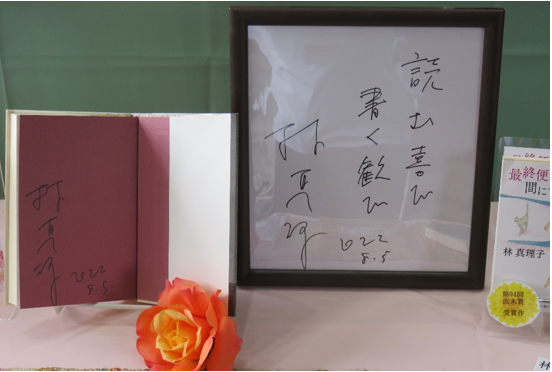 読む喜び
書く歓び
林真理子
2022
8.5
林真理子
2022
8.5
最終便
間に
林 真理子
第94回
直木賞
受賞作
林